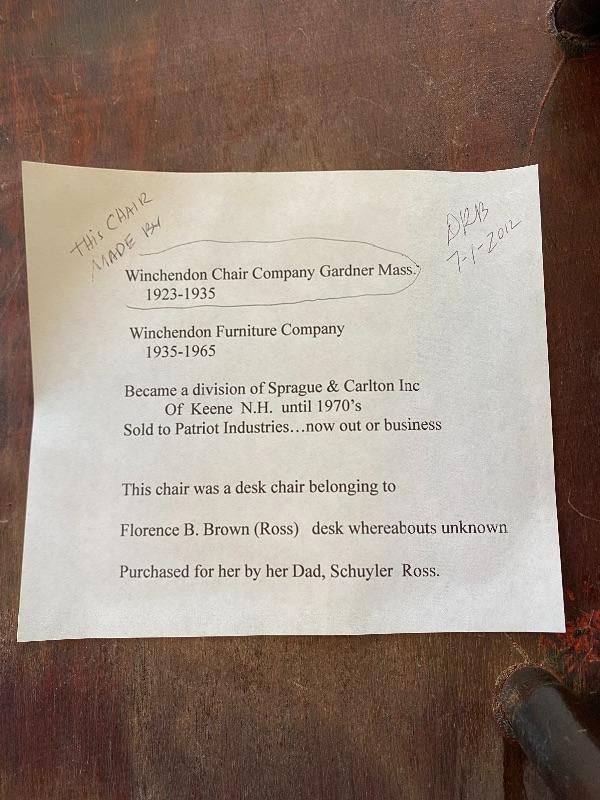 THIS CHAIR
MADE BY
DRB
7-1-2012
Winchendon Chair Company Gardner Mass.
1923-1935
Winchendon Furniture Company
1935-1965
Became a division of Sprague & Carlton Inc
Of Keene N.H. until 1970's
Sold to Patriot Industries...now out or business
This chair was a desk chair belonging to
Florence B. Brown (Ross) desk whereabouts unknown
Purchased for her by her Dad, Schuyler Ross.